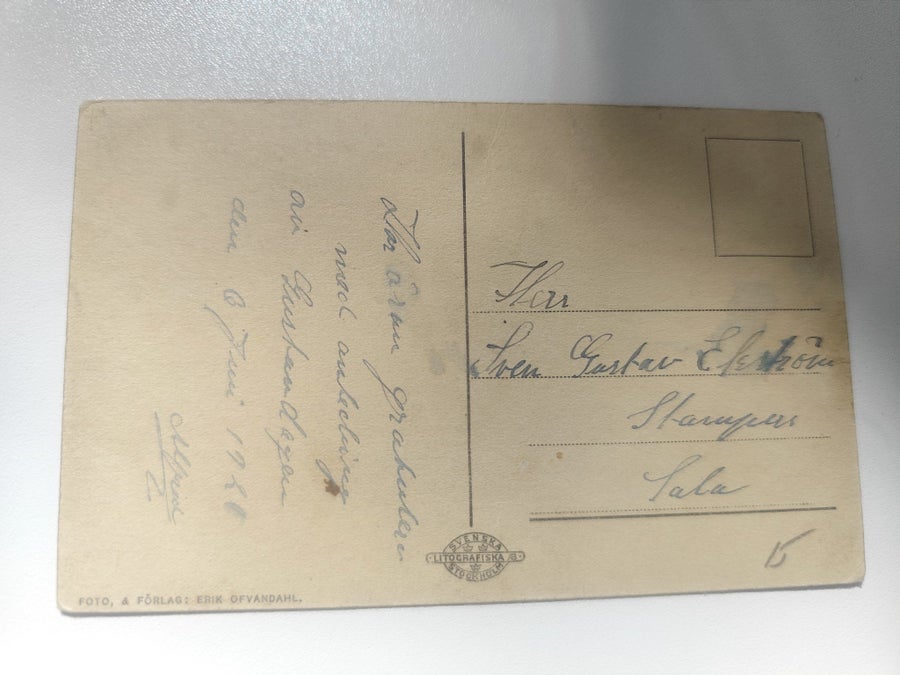 Har även gratulera
med anledning
av Gustavdagen
den 6 Juni 1920
Alfred
Herr
Sven Gustav Ekström
Stampers
Sala
15
SVENSKA
LITOGRAFISKA A.B.
STOCKHOLM
FOTO, & FÖRLAG: ERIK OFVANDAHL.